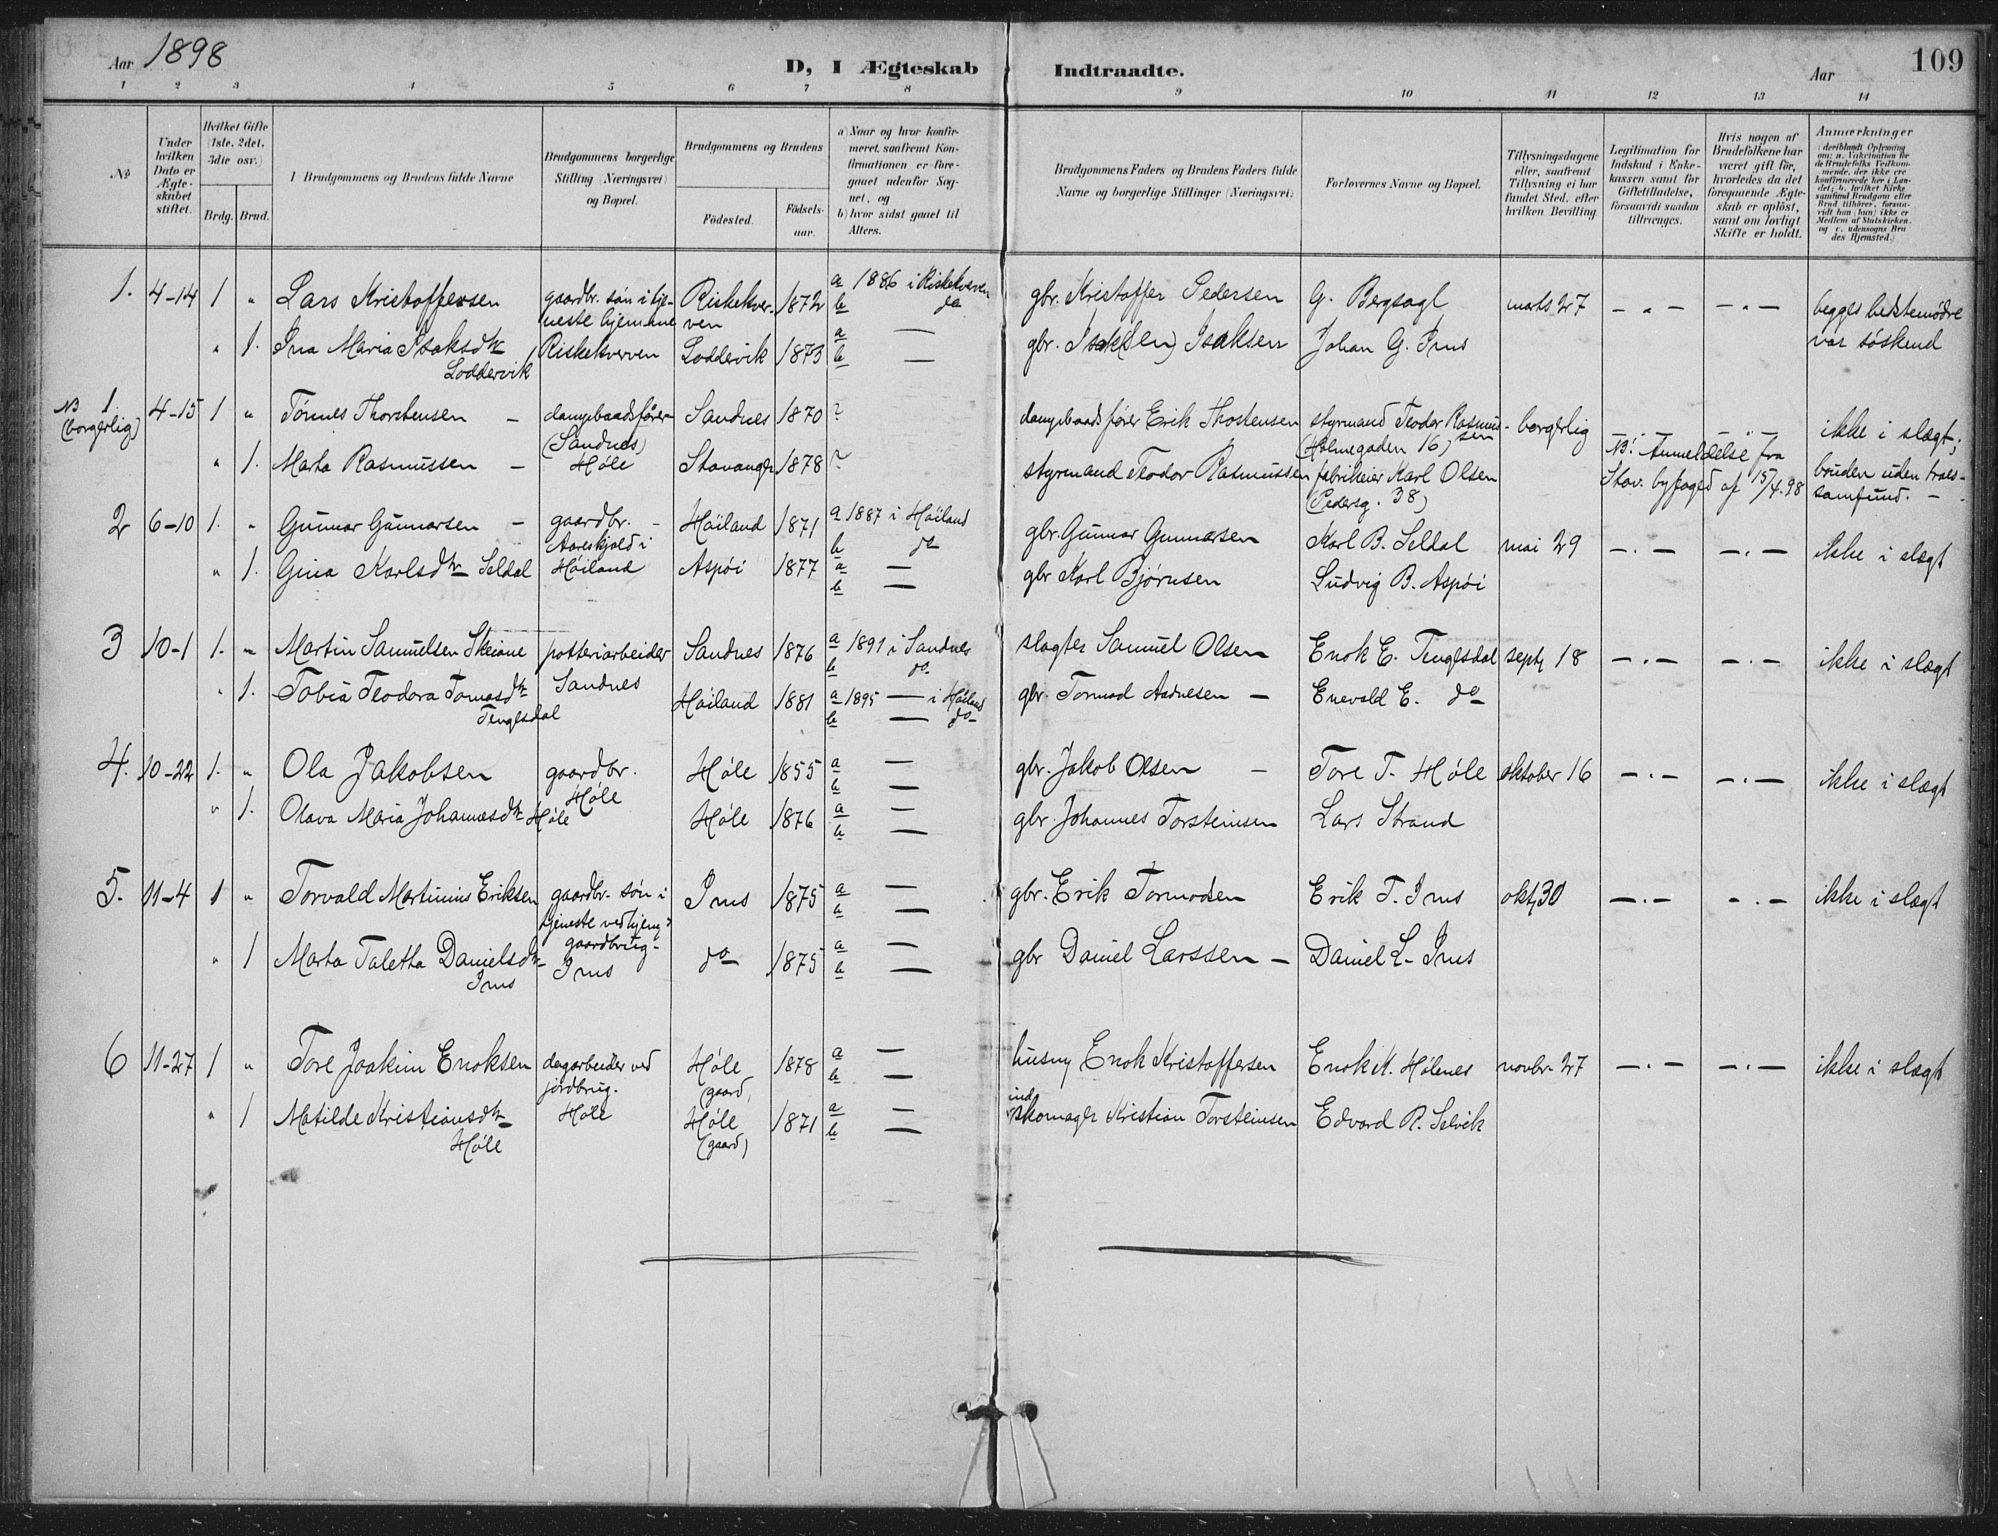 Aar 1898 D, I Ægteskab Indtraadte. Aar 109
1 2 3 4 5 6 7 8 9 10 11 12 13 14
No.
Under hvilken Dato er Ægteskabet stiftet.
Hvilket Gifte (1ste, 2det, 3die osv.)
Brdg. Brud.
1 Brudgommens og Brudens fulde Navne
Brudgommens borgerlige Stilling (Næringsvei) og Bopæl.
Brudgommens og Brudens
Födested. Födsels-aar.
a) Naar og hvor konfirmeret, saafremt Konfirmationen er foregaaet udenfor Sognet, og
b) hvor sidst gaaet til Alters.
Brudgommens Faders og Brudens Faders fulde Navne og borgerlige Stillinger (Næringsvei)
Forlovernes Navne og Bopæl.
Tillysningsdagene eller, saafremt Tillysning ei har fundet Sted, efter hvilken Bevilling.
Legitimation for Indskud i Enkekassen samt for Giftetilladelse, forsaavidt saadan tiltrænges.
Hvis nogen af Brudefolkene har været gift för, hvorledes da det foregaaende Ægteskab er oplöst, samt om lovligt Skifte er holdt.
Anmærkninger
1. 4-14 1 " Lars Kristoffersen gaardbr. søn i tje-neste hjemme Riskekver-ven 1872 a 1886 i Riskekverven b do gbr. Kristoffer Pedersen G. Bergsagl mats 27 — " — — " — begges bedstemødre
" 1. Ina Maria Isaksdtr Loddervik Riskekverven Loddevik 1873 a — b — gbr. Isak(en) Isaksen Johan G. Ims var søskend
NB 1. (borgerlig) 4-15 1 " Tønnes Thorstensen — dampbaadsfører (Sandnes) Sandnes 1870 ? dampbaadsfører Erik Thostensen styrmand Teodor Rasmussen (Holmegaden 16) borgerlig ikke i slægt;
" 1. Marta Rasmussen — Høle Stavanger 1878 ? styrmand Teodor Rasmussen fabrikeier Karl Olsen (Pedersg. 38) NB! Anmeldelse fra Stav. byfoged af 15/4.98 bruden uden troes-samfund. —
2 6-10 1. " Gunnar Gunnarsen — gaardbr. — Høiland 1871 a 1887 i Høiland b do gbr. Gunnar Gunnarsen Karl B. Seldal mai 29 — . — — . — ikke i slægt
" 1. Gina Karlsdtr Seldal i Høiland Aspøi 1877 a — b — gbr Karl Bjørnsen Ludvig B. Aspøi
3 10-1 1. " Martin Samuelsen Skeiane potteriarbeider Sandnes 1876 a 1891 i Sandnes b do. slagter Samuel Olsen Enok E. Tenglsdal septr 18 — . — — . — ikke i slægt
" 1. Tobia Teodora Tomasdtr Tenglsdal Sandnes Høiland 1881 a 1895 — i Høiland b — do gbr. Tormod Aadnesen — Enevald E. do
4. 10-22 1. " Ola Jakobsen gaardbr. Høle Høle 1855 a — b — gbr. Jakob Olsen — Tore T. Høle oktober 16 — . — — . — ikke i slægt
" 1. Olava Maria Johannesdtr Høle Høle 1876 a — b — gbr. Johannes Torsteinsen Lars Strand
5. 11-4 1 " Torvald Martinius Eriksen gaardbr. søn i tjeneste ved hjem gaardbrug Ims Ims 1875 a — b — gbr. Erik Tormodsen Erik T. Ims okt. 30 — . — — . — ikke i slægt
" 1 Marta Taletta Danielsdtr Ims do 1875 a — b — gbr Daniel Larssen — Daniel L. Ims
6 11-27 1 " Tore Joakim Enoksen dagarbeider ved jordbrug. Høle Høle (gaard) 1878 a — b — husmd Enok Kristoffersen Enok K. Hølenes novbr 27 — . — — . — ikke i slægt
" 1 Matilde Kristiansdtr Høle Høle (gaard) 1871 a — b — skomager Kristian Torsteinsen Edvard R. Selvik